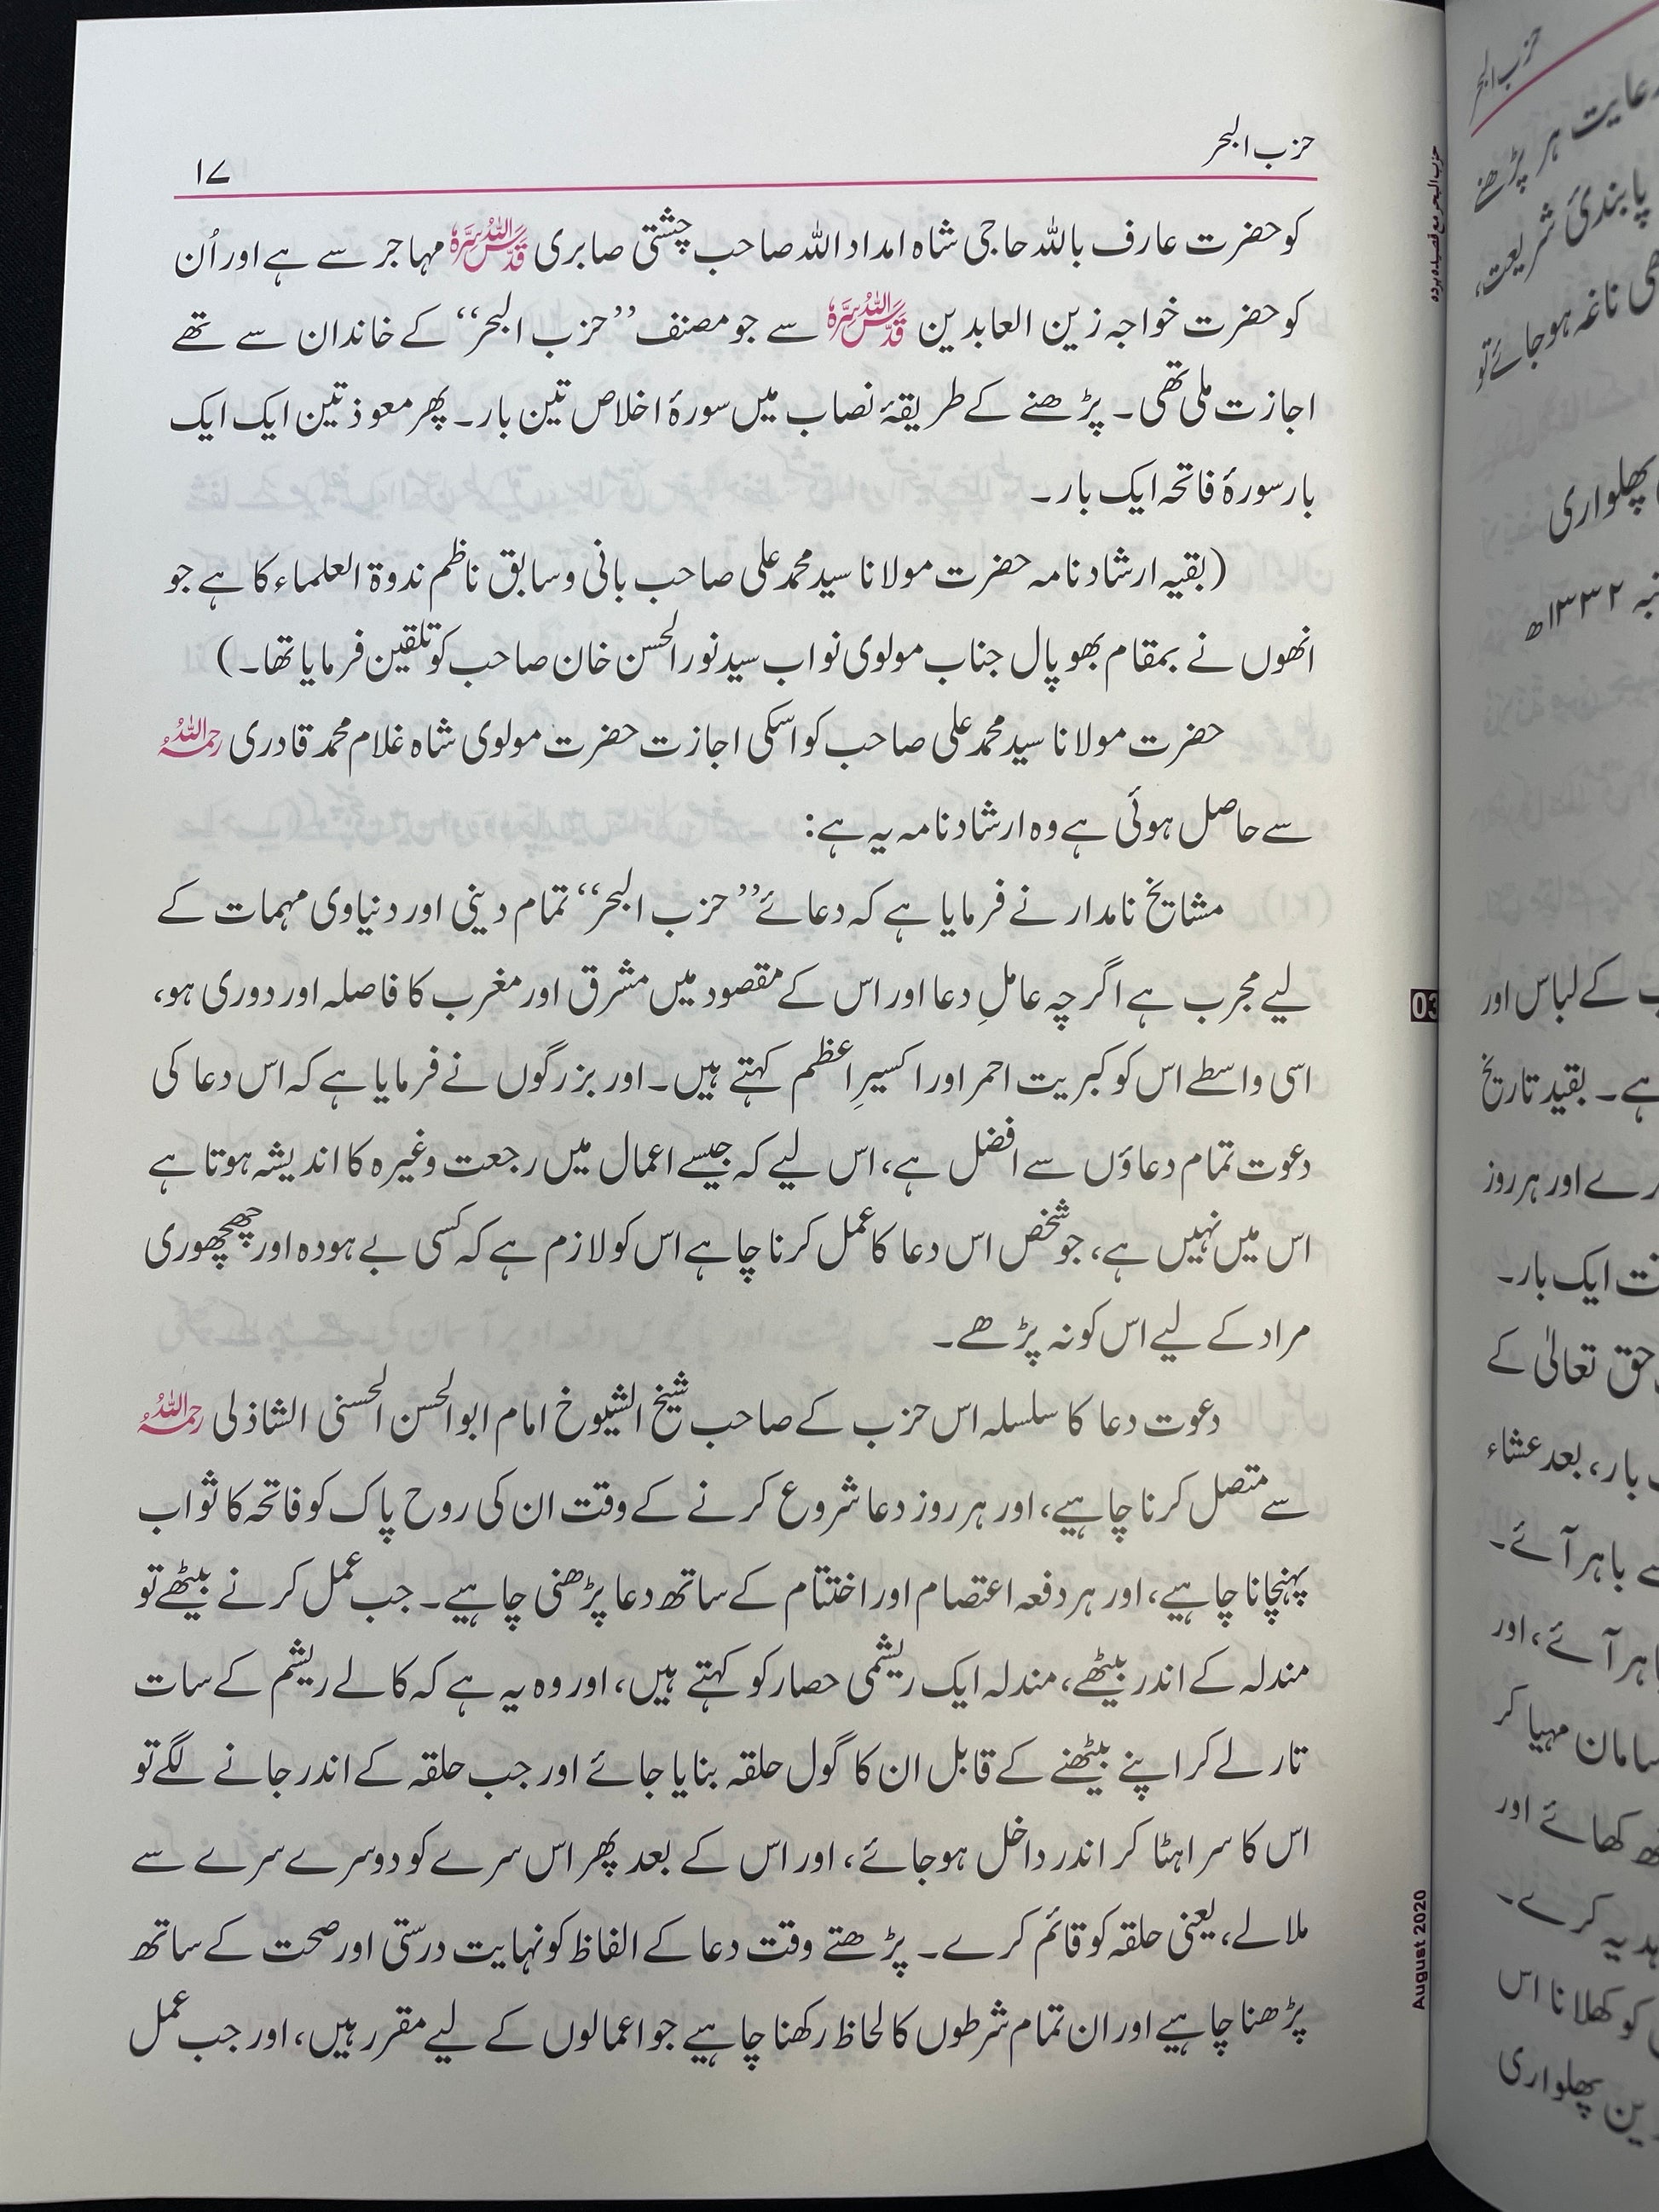 حزب البحر
۱۷
کو حضرت عارف باللہ حاجی شاہ امداد اللہ صاحب چشتی صابری قدس اللہ سرہ مہاجر سے ہے اور اُن
کو حضرت خواجہ زین العابدین قدس اللہ سرہ سے جو مصنف ’’حزب البحر‘‘ کے خاندان سے تھے
اجازت ملی تھی۔ پڑھنے کے طریقۂ نصاب میں سورۂ اخلاص تین بار۔ پھر معوذتین ایک ایک
بار سورۂ فاتحہ ایک بار۔
(بقیہ ارشاد نامہ حضرت مولانا سید محمد علی صاحب بانی و سابق ناظم ندوۃ العلماء کا ہے جو
انھوں نے بمقام بھوپال جناب مولوی نواب سید نور الحسن خان صاحب کو تلقین فرمایا تھا۔)
حضرت مولانا سید محمد علی صاحب کو اسکی اجازت حضرت مولوی شاہ غلام محمد قادری رحمہ اللہ
سے حاصل ہوئی ہے وہ ارشاد نامہ یہ ہے:
مشایخ نامدار نے فرمایا ہے کہ دعائے ’’حزب البحر‘‘ تمام دینی اور دنیاوی مہمات کے
لیے مجرب ہے اگر چہ عاملِ دعا اور اس کے مقصود میں مشرق اور مغرب کا فاصلہ اور دوری ہو،
اسی واسطے اس کو کبریت احمر اور اکسیرِ اعظم کہتے ہیں۔ اور بزرگوں نے فرمایا ہے کہ اس دعا کی
دعوت تمام دعاؤں سے افضل ہے، اس لیے کہ جیسے اعمال میں رجعت وغیرہ کا اندیشہ ہوتا ہے
اس میں نہیں ہے، جو شخص اس دعا کا عمل کرنا چاہے اس کو لازم ہے کہ کسی بے ہودہ اور چھچھوری
مراد کے لیے اس کو نہ پڑھے۔
دعوت دعا کا سلسلہ اس حزب کے صاحب شیخ الشیوخ امام ابو الحسن الحسنی الشاذلی رحمہ اللہ
سے متصل کرنا چاہیے، اور ہر روز دعا شروع کرنے کے وقت ان کی روح پاک کو فاتحہ کا ثواب
پہنچانا چاہیے، اور ہر دفعہ اعتصام اور اختتام کے ساتھ دعا پڑھنی چاہیے۔ جب عمل کرنے بیٹھے تو
مندلہ کے اندر بیٹھے، مندلہ ایک ریشمی حصار کو کہتے ہیں، اور وہ یہ ہے کہ کالے ریشم کے سات
تار لے کر اپنے بیٹھنے کے قابل ان کا گول حلقہ بنایا جائے اور جب حلقہ کے اندر جانے لگے تو
اس کا سرا ہٹا کر اندر داخل ہو جائے، اور اس کے بعد پھر اس سرے کو دوسرے سرے سے
ملا لے، یعنی حلقہ کو قائم کرے۔ پڑھتے وقت دعا کے الفاظ کو نہایت درستی اور صحت کے ساتھ
پڑھنا چاہیے اور ان تمام شرطوں کا لحاظ رکھنا چاہیے جو اعمالوں کے لیے مقرر ہیں، اور جب عمل
حزب البحر مع قصیدہ بردہ
03
August 2020
حزب البحر
عایت ہر پڑھنے
پابندیٔ شریعت،
ناغہ ہو جائے تو
پھلواری
۱۳۳۲ھ
کے لباس اور
ہے۔ بقید تاریخ
رے اور ہر روز
ایک بار۔
حق تعالیٰ کے
بار، بعد عشاء
باہر آئے۔
باہر آئے، اور
سامان مہیا کر
کھائے اور
ہدیہ کرے۔
کو کھلانا اس
پھلواری